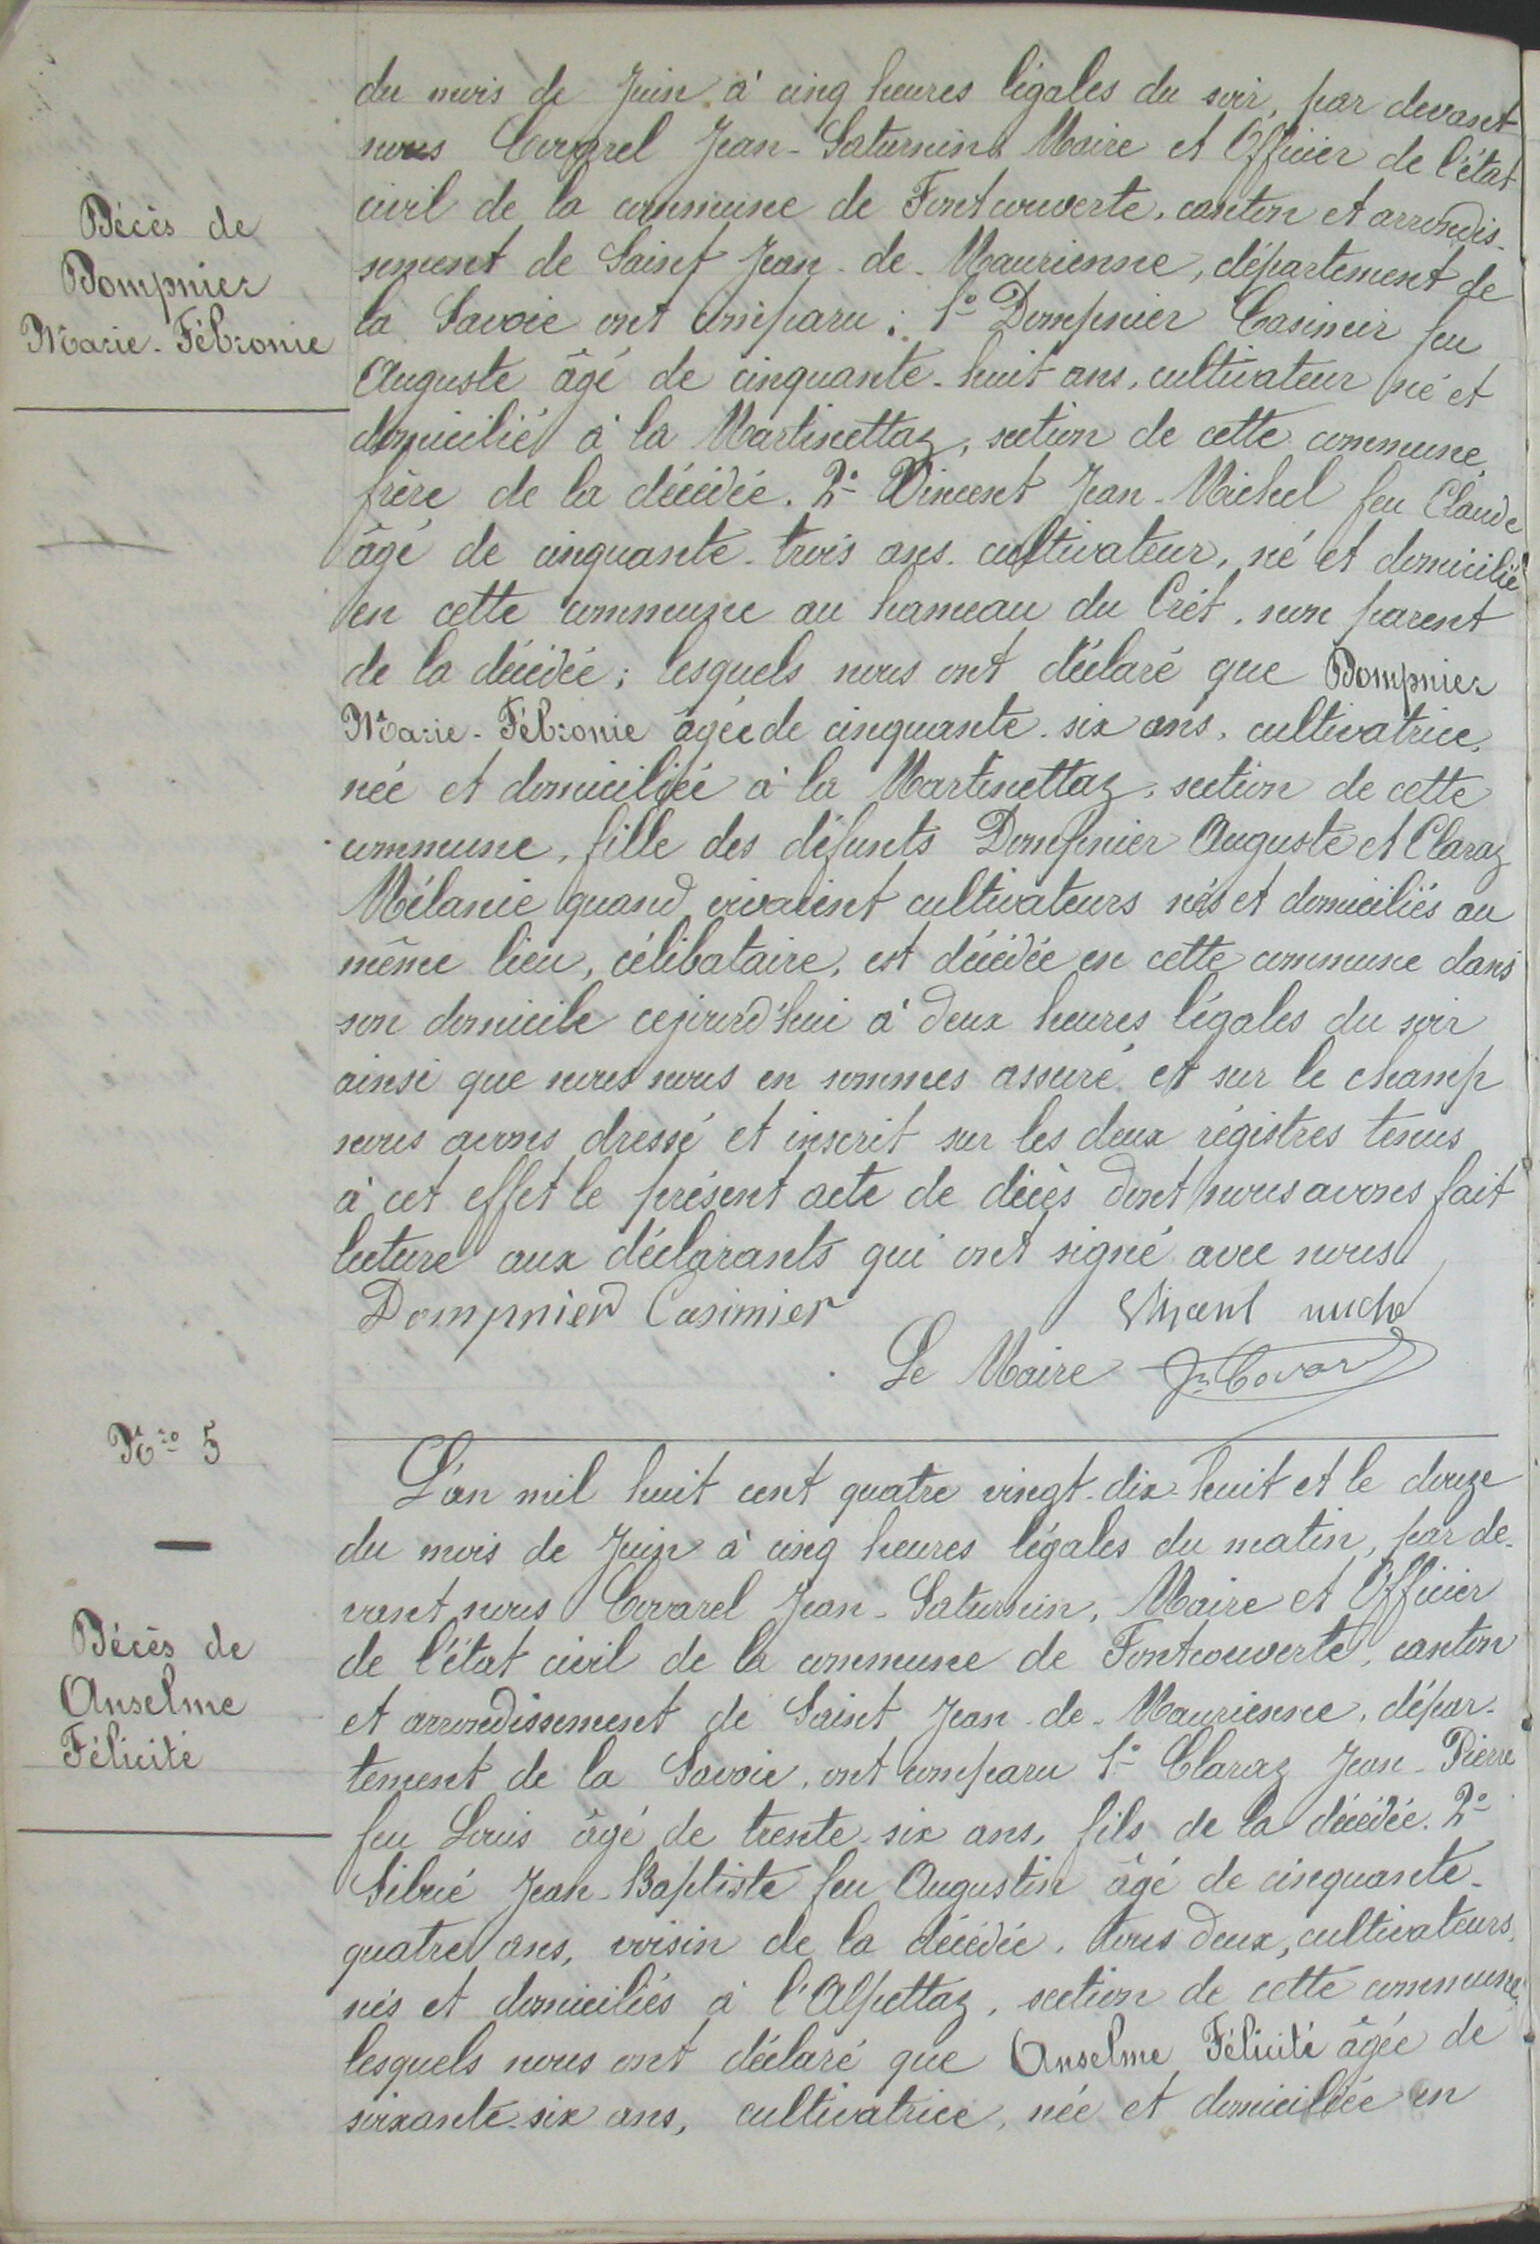 du mois de Juin à cinq heures légales du soir, par devant
nous Covarel Jean-Saturnin Maire et Officier de l'état
civil de la commune de Fontcouverte, canton et arrondis-
sement de Saint Jean-de-Maurienne, département de
la Savoie ont comparu : 1º Dompnier Casimir feu
Auguste âgé de cinquante-huit ans, cultivateur né et
domicilié à la Martinettaz, section de cette commune,
frère de la décédée. 2º Vincent Jean-Michel feu Claude
âgé de cinquante-trois ans cultivateur, né et domicilié
en cette commune au hameau du Crêt, non parent
de la décédée; lesquels nous ont déclaré que Dompnier
Marie-Fébronie âgée de cinquante-six ans, cultivatrice,
née et domiciliée à la Martinettaz, section de cette
commune, fille des défunts Dompnier Auguste et Claraz
Mélanie quand vivaient cultivateurs nés et domiciliés au
même lieu, célibataire, est décédée en cette commune dans
son domicile cejourd'hui à deux heures légales du soir
ainsi que nous nous en sommes assuré et sur le champ
nous avons dressé et inscrit sur les deux régistres tenus
à cet effet le présent acte de décès dont nous avons fait
lecture aux déclarants qui ont signé avec nous
Dompnier Casimier Vincent miche
Le Maire Jn Covar
Décès de
Dompnier
Marie-Fébronie
Nro 5
Décès de
Anselme
Félicité
L'an mil huit cent quatre vingt-dix-huit et le douze
du mois de Juin à cinq heures légales du matin, par de-
vant nous Covarel Jean-Saturnin, Maire et Officier
de l'état civil de la commune de Fontcouverte, canton
et arrondissement de Saint Jean-de-Maurienne, dépar-
tement de la Savoie, ont comparu 1º Claraz Jean-Pierre
feu Louis âgé de trente-six ans, fils de la décédée. 2º
Sibué Jean-Baptiste feu Augustin âgé de cinquante-
quatre ans, voisin de la décédée, tous deux, cultivateurs,
nés et domiciliés à l'Alpettaz, section de cette commune,
lesquels nous ont déclaré que Anselme Félicité âgée de
soixante-six ans, cultivatrice, née et domiciliée en